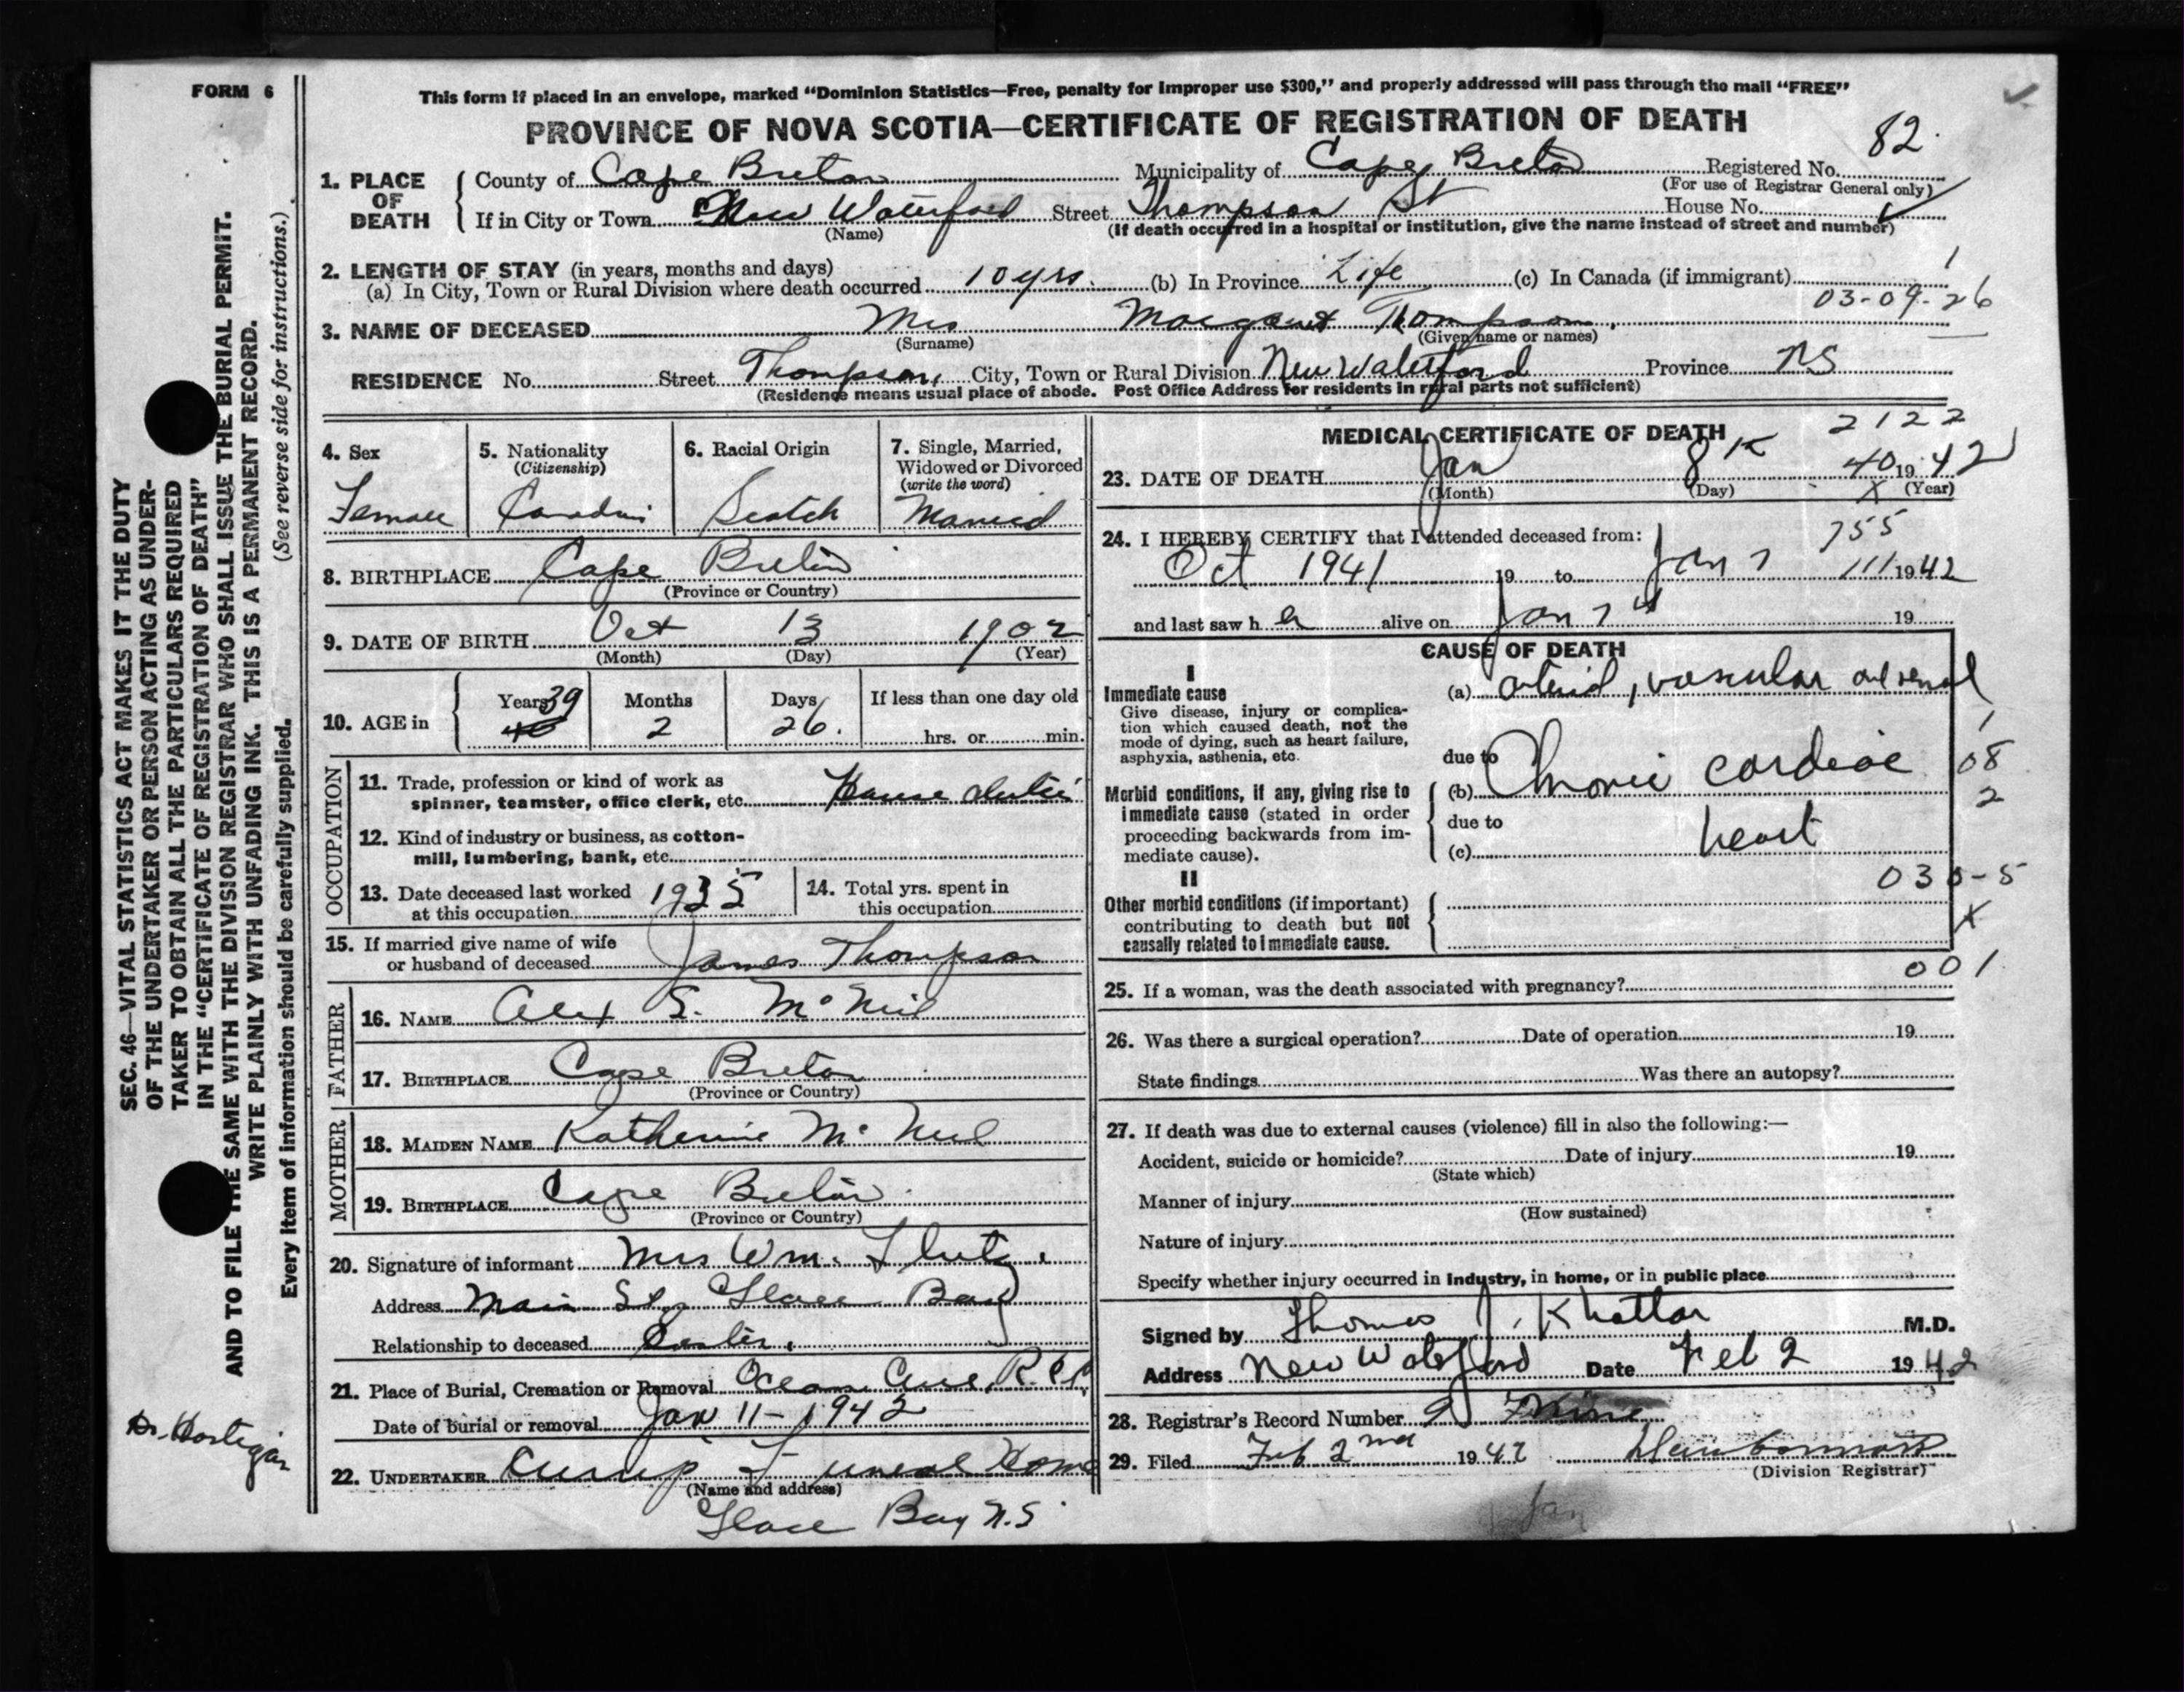 FORM 6
This form if placed in an envelope, marked "Dominion Statistics—Free, penalty for improper use $300," and properly addressed will pass through the mail "FREE"
PROVINCE OF NOVA SCOTIA—CERTIFICATE OF REGISTRATION OF DEATH
82
1. PLACE OF DEATH
County of Cape Breton Municipality of Cape Breton Registered No.
(For use of Registrar General only)
If in City or Town New Waterford Street Thompson St House No.
(Name) (If death occurred in a hospital or institution, give the name instead of street and number)
2. LENGTH OF STAY (in years, months and days) 1
(a) In City, Town or Rural Division where death occurred 10 yrs. (b) In Province Life (c) In Canada (if immigrant)
03-09-26
3. NAME OF DECEASED Mrs Margaret Thompson
(Surname) (Given name or names)
RESIDENCE No. Street Thompson, City, Town or Rural Division New Waterford Province NS
(Residence means usual place of abode. Post Office Address for residents in rural parts not sufficient)
4. Sex
Female
5. Nationality
(Citizenship)
6. Racial Origin
Scotch
7. Single, Married,
Widowed or Divorced
(write the word)
Married
8. BIRTHPLACE Cape Breton
(Province or Country)
9. DATE OF BIRTH Oct 13 1902
(Month) (Day) (Year)
10. AGE in
Years 39 40
Months 2
Days 26.
If less than one day old
hrs. or min.
OCCUPATION
11. Trade, profession or kind of work as
spinner, teamster, office clerk, etc. House duties
12. Kind of industry or business, as cotton-
mill, lumbering, bank, etc.
13. Date deceased last worked
at this occupation 1935
14. Total yrs. spent in
this occupation
15. If married give name of wife
or husband of deceased James Thompson
FATHER
16. NAME Alex S. McNeil
17. BIRTHPLACE Cape Breton
(Province or Country)
MOTHER
18. MAIDEN NAME Katherine McNeil
19. BIRTHPLACE Cape Breton
(Province or Country)
20. Signature of informant Mrs Wm.
Address Main St, Glace Bay
Relationship to deceased
21. Place of Burial, Cremation or Removal Ocean R.C.
Date of burial or removal Jan 11 - 1942
22. UNDERTAKER Funeral Home
(Name and address)
Glace Bay N.S.
MEDICAL CERTIFICATE OF DEATH
2122
23. DATE OF DEATH Jan 8 40 1942
(Month) (Day) X (Year)
24. I HEREBY CERTIFY that I attended deceased from: 755
Oct 1941 19 to Jan 7 111 1942
and last saw her alive on Jan 7 19
CAUSE OF DEATH
I
Immediate cause
Give disease, injury or complica-
tion which caused death, not the
mode of dying, such as heart failure,
asphyxia, asthenia, etc.
(a) vascular and renal
1
due to
08
Morbid conditions, if any, giving rise to
immediate cause (stated in order
proceeding backwards from im-
mediate cause).
(b) Chronic cardiac
2
due to
(c) heart
II
030-5
Other morbid conditions (if important)
contributing to death but not
causally related to immediate cause.
X
001
25. If a woman, was the death associated with pregnancy?
26. Was there a surgical operation? Date of operation 19
State findings Was there an autopsy?
27. If death was due to external causes (violence) fill in also the following:—
Accident, suicide or homicide? Date of injury 19
(State which)
Manner of injury
(How sustained)
Nature of injury
Specify whether injury occurred in industry, in home, or in public place
Signed by Thomas J. Khattar M.D.
Address New Waterford Date Feb 2 1942
28. Registrar's Record Number 9 Nine
29. Filed Feb 2nd 1942
(Division Registrar)
Jan
SEC. 46—VITAL STATISTICS ACT MAKES IT THE DUTY
OF THE UNDERTAKER OR PERSON ACTING AS UNDER-
TAKER TO OBTAIN ALL THE PARTICULARS REQUIRED
IN THE "CERTIFICATE OF REGISTRATION OF DEATH"
AND TO FILE THE SAME WITH THE DIVISION REGISTRAR WHO SHALL ISSUE THE BURIAL PERMIT.
WRITE PLAINLY WITH UNFADING INK. THIS IS A PERMANENT RECORD.
Every item of information should be carefully supplied. (See reverse side for instructions.)
Dr. Hartigan